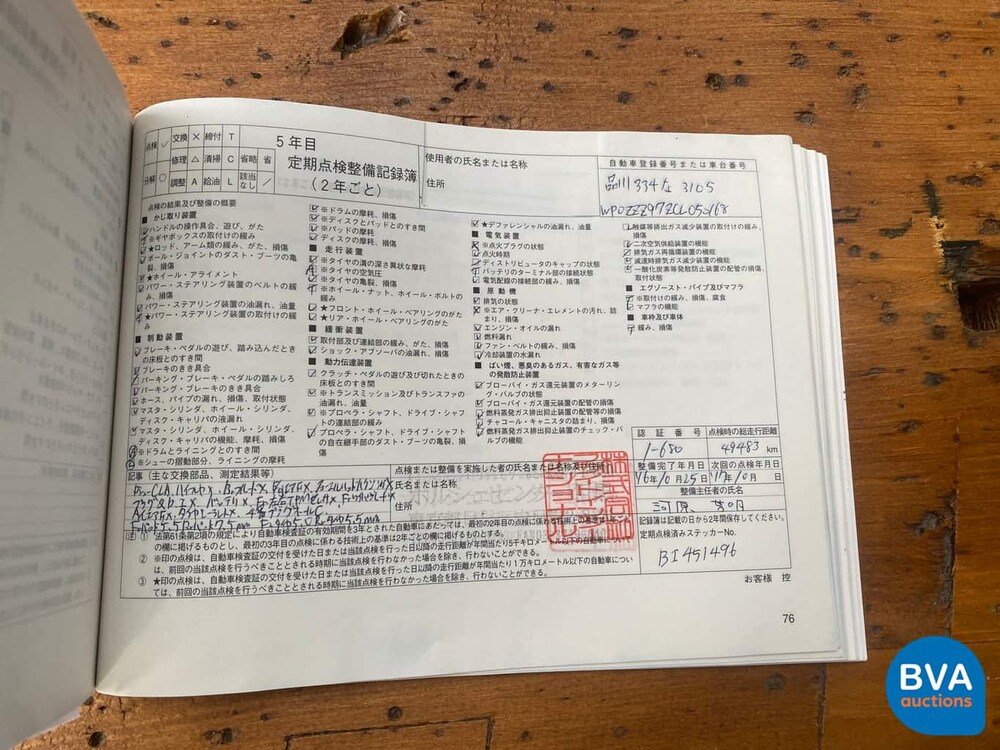 点検 ✓ 交換 × 締付 T
修理 △ 清掃 C 省略 省
分解 ○ 調整 A 給油 L 該当なし ／
5年目
定期点検整備記録簿
(2年ごと)
使用者の氏名または名称
住所
自動車登録番号または車台番号
品川 334 な 3105
点検の結果及び整備の概要
■ かじ取り装置
ハンドルの操作具合、遊び、がた
※ギヤボックスの取付けの緩み
★ロッド、アーム類の緩み、がた、損傷
ボール・ジョイントのダスト・ブーツの亀裂、損傷
★ホイール・アライメント
パワー・ステアリング装置のベルトの緩み、損傷
パワー・ステアリング装置の油漏れ、油量
★パワー・ステアリング装置の取付けの緩み
■ 制動装置
ブレーキ・ペダルの遊び、踏み込んだとき
の床板とのすき間
ブレーキのきき具合
パーキング・ブレーキ・ペダルの踏みしろ
パーキング・ブレーキのきき具合
ホース、パイプの漏れ、損傷、取付状態
マスタ・シリンダ、ホイール・シリンダ、
ディスク・キャリパの液漏れ
マスタ・シリンダ、ホイール・シリンダ、
ディスク・キャリパの機能、摩耗、損傷
※ドラムとライニングとのすき間
※シューの摺動部分、ライニングの摩耗
※ドラムの摩耗、損傷
※ディスクとパッドとのすき間
※パッドの摩耗
ディスクの摩耗、損傷
■ 走行装置
※タイヤの溝の深さ異状な摩耗
※タイヤの空気圧
※タイヤの亀裂、損傷
※ホイール・ナット、ホイール・ボルトの
緩み
★フロント・ホイール・ベアリングのがた
★リア・ホイール・ベアリングのがた
■ 緩衝装置
取付部及び連結部の緩み、がた、損傷
ショック・アブソーバの油漏れ、損傷
■ 動力伝達装置
クラッチ・ペダルの遊び及び切れたときの
床板とのすき間
※トランスミッション及びトランスファの
油漏れ、油量
※プロペラ・シャフト、ドライブ・シャフト
の連結部の緩み
プロペラ・シャフト、ドライブ・シャフト
の自在継手部のダスト・ブーツの亀裂、損
傷
★デファレンシャルの油漏れ、油量
■ 電気装置
※点火プラグの状態
点火時期
ディストリビュータのキャップの状態
バッテリのターミナル部の接続状態
電気配線の接続部の緩み、損傷
■ 原動機
排気の状態
※エア・クリーナ・エレメントの汚れ、詰
まり、損傷
エンジン・オイルの漏れ
燃料漏れ
ファン・ベルトの緩み、損傷
冷却装置の水漏れ
■ ばい煙、悪臭のあるガス、有害なガス等
の発散防止装置
ブローバイ・ガス還元装置のメターリン
グ・バルブの状態
ブローバイ・ガス還元装置の配管の損傷
燃料蒸発ガス排出抑止装置の配管等の損傷
チャコール・キャニスタの詰まり、損傷
燃料蒸発ガス排出抑止装置のチェック・バ
ルブの機能
触媒等排出ガス減少装置の取付けの緩み、
損傷
二次空気供給装置の機能
排気ガス再循環装置の機能
減速時排気ガス減少装置の機能
一酸化炭素等発散防止装置の配管の損傷、
取付状態
■ エグゾースト・パイプ及びマフラ
※取付けの緩み、損傷、腐食
マフラの機能
■ 車枠及び車体
緩み、損傷
認証番号 点検時の総走行距離
1-680 49483 km
整備完了年月日 次回の点検年月日
'16年10月25日 '17年10月 日
整備主任者の氏名
記録簿は記載の日から2年間保存してください。
定期点検済ステッカーNo.
BI451496
お客様 控
記事（主な交換部品、測定結果等）
点検または整備を実施した者の氏名または名称及び住所
氏名または名称
住所
注 ① 法第61条第2項の規定により自動車検査証の有効期間を3年とされた自動車にあたっては、最初の2年目の点検に係る技術上の基準は1年ごと
の欄に掲げるものとし、最初の3年目の点検に係る技術上の基準は2年ごとの欄に掲げるものとする。
② ※印の点検は、自動車検査証の交付を受けた日または当該点検を行った日以降の走行距離が年間当たり5千キロメートル以下の自動車につい
ては、前回の当該点検を行うべきこととされる時期に当該点検を行わなかった場合を除き、行わないことができる。
③ ★印の点検は、自動車検査証の交付を受けた日または当該点検を行った日以降の走行距離が年間当たり1万キロメートル以下の自動車につい
ては、前回の当該点検を行うべきこととされる時期に当該点検を行わなかった場合を除き、行わないことができる。
76
BVA
auctions